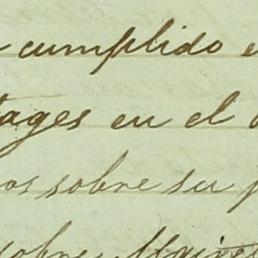 cumplido e
tages en el
os sobre su p
sobre